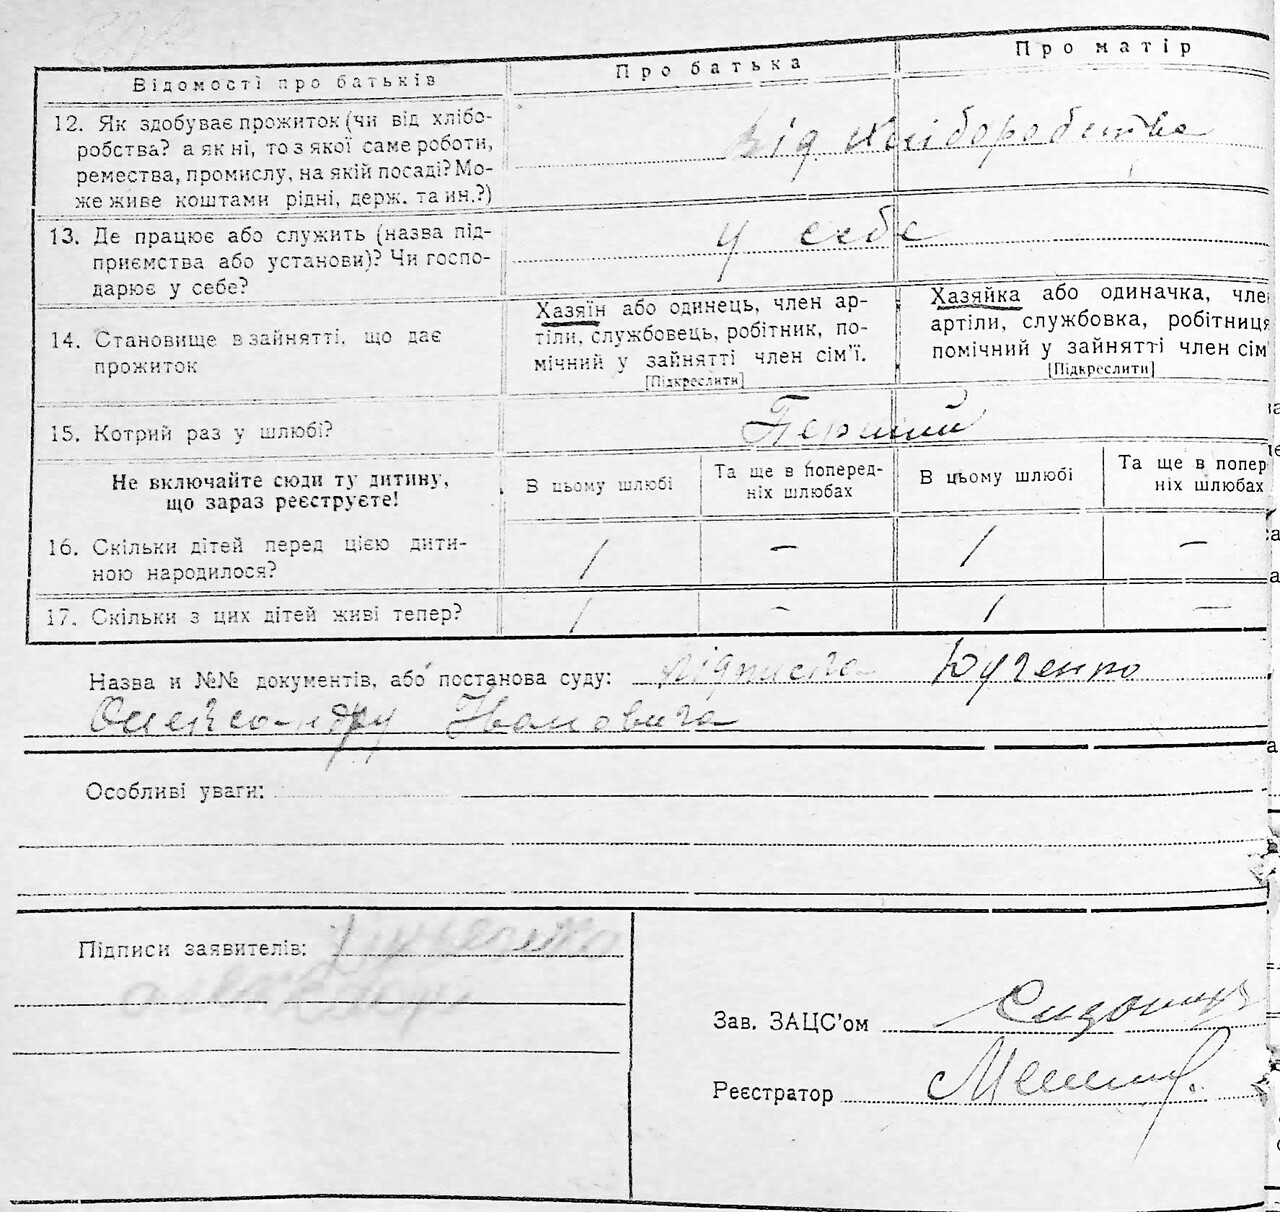 Відомості про батьків
Про батька
Про матір
12. Як здобуває прожиток (чи від хлібо-
робства? а як ні, то з якої саме роботи,
ремества, промислу, на якій посаді? Мо-
же живе коштами рідні, держ. та ин.?)
Від хліборобства
13. Де працює або служить (назва під-
приємства або установи)? Чи госпо-
дарює у себе?
у себе
14. Становище в зайнятті, що дає
прожиток
Хазяїн або одинець, член ар-
тіли, службовець, робітник, по-
мічний у зайнятті член сім'ї.
[Підкреслити]
Хазяйка або одиначка, чле
артіли, службовка, робітниця
помічний у зайнятті член сім'
[Підкреслити]
15. Котрий раз у шлюбі?
Перший
Не включайте сюди ту дитину,
що зараз реєструєте!
В цьому шлюбі
Та ще в поперед-
ніх шлюбах
В цьому шлюбі
Та ще в попер
ніх шлюбах
16. Скільки дітей перед цією дити-
ною народилося?
1 — 1 —
17. Скільки з цих дітей живі тепер?
1 - 1 —
Назва и №№ документів, або постанова суду:
Олександру Івановича
Особливі уваги:
Підписи заявителів:
Зав. ЗАЦС'ом
Реєстратор